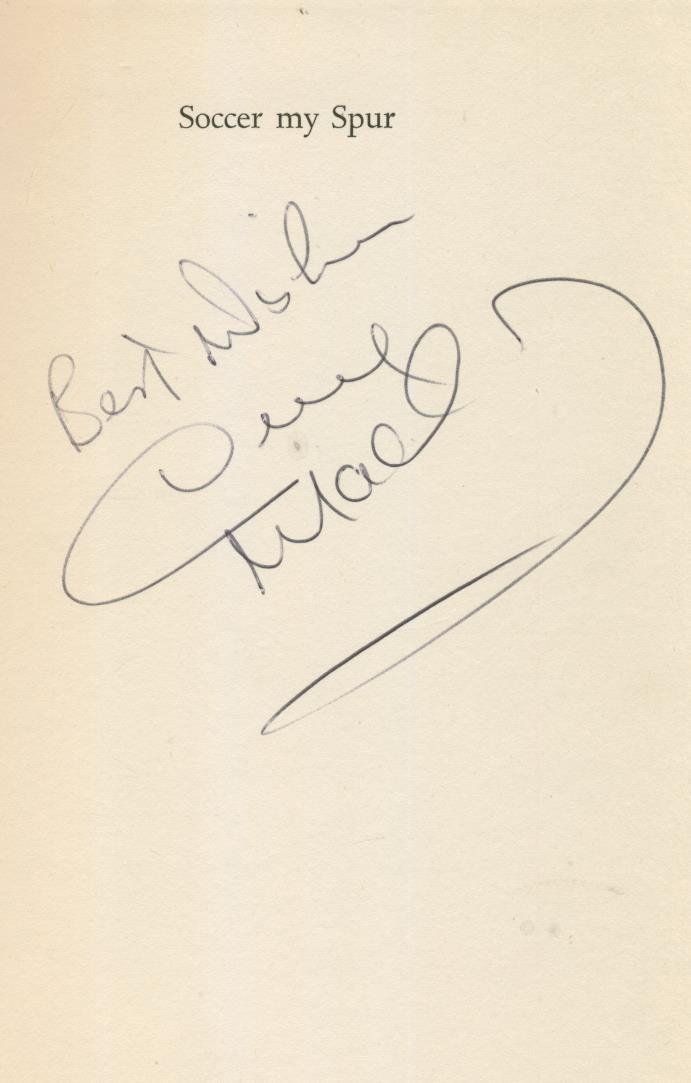 Soccer my Spur
Best Wishes
Dave
Mackay